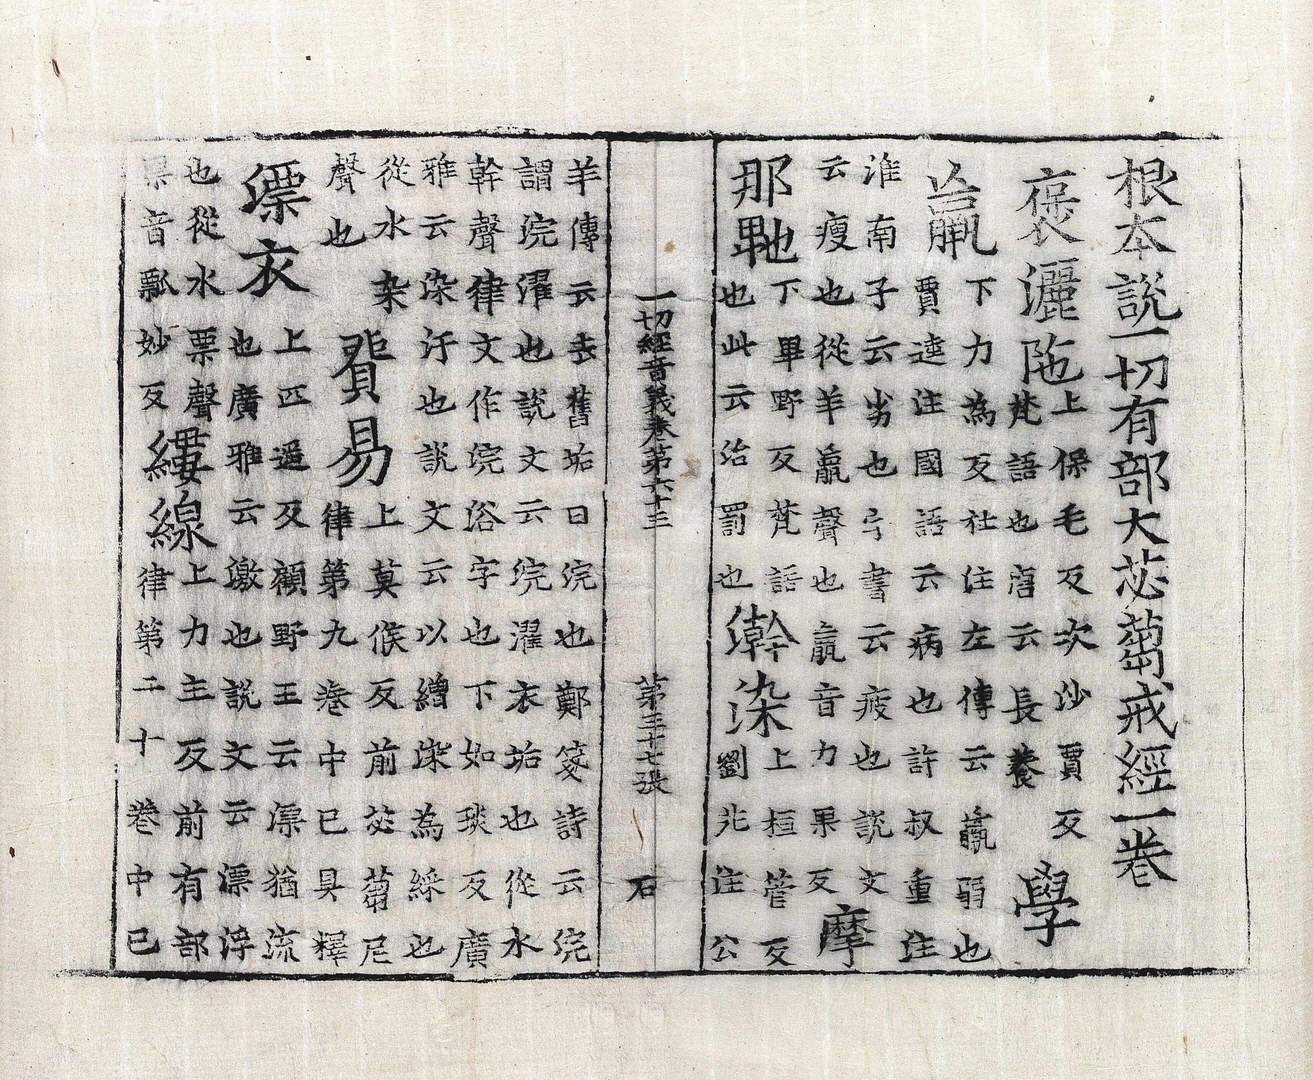 根本說一切有部大苾蒭戒經一卷
褒灑陁
上保毛反次沙賈反
梵語也唐云長養
學
羸
下力為反杜注左傳云羸弱也
賈逵注國語云病也許叔重注
淮南子云劣也亇書云疲也說文
云瘦也從羊𦝠聲也𦝠音力果反
摩
那
下畢野反梵語
也此云治罰也
澣染
上桓管反
劉兆注公
一切經音義卷第六十三 第三十七張 石
羊傳云去舊垢曰浣也鄭箋詩云浣
謂浣濯也說文云浣濯衣垢也從水
幹聲律文作浣俗字也下如琰反廣
雅云染汙也說文云以繒染為綵也
從水杂
聲也
貿易
上莫候反前苾蒭尼
律第九卷中已具釋
漂衣
上匹遥反顧野王云漂猶流
也廣雅云潎也說文云漂浮
也從水票聲
票音瓢妙反
縷線
上力主反前有部
律第二十卷中已